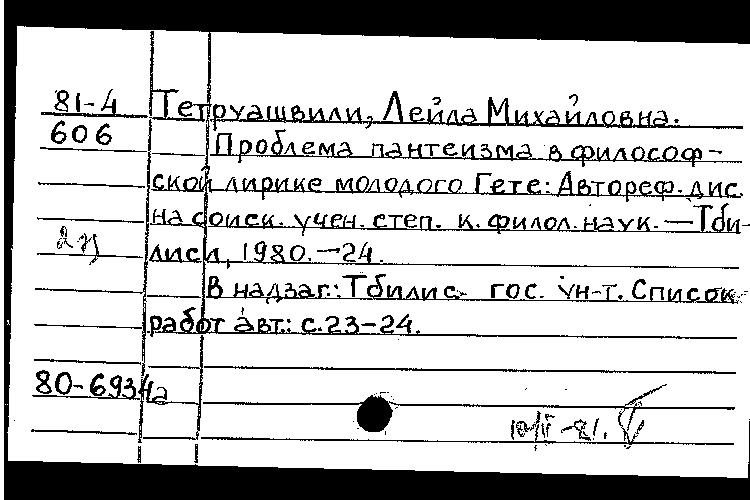 81-4 Тетруашвили, Лейла Михайловна.
606 Проблема пантеизма в философ-
ской лирике молодого Гете: Автореф. дис.
на соиск. учен. степ. к. филол. наук. — Тби-
лиси, 1980. — 24.
В надзаг.: Тбилис. гос. ун-т. Список
работ авт.: с. 23-24.
80-6934а
10/IV-81.